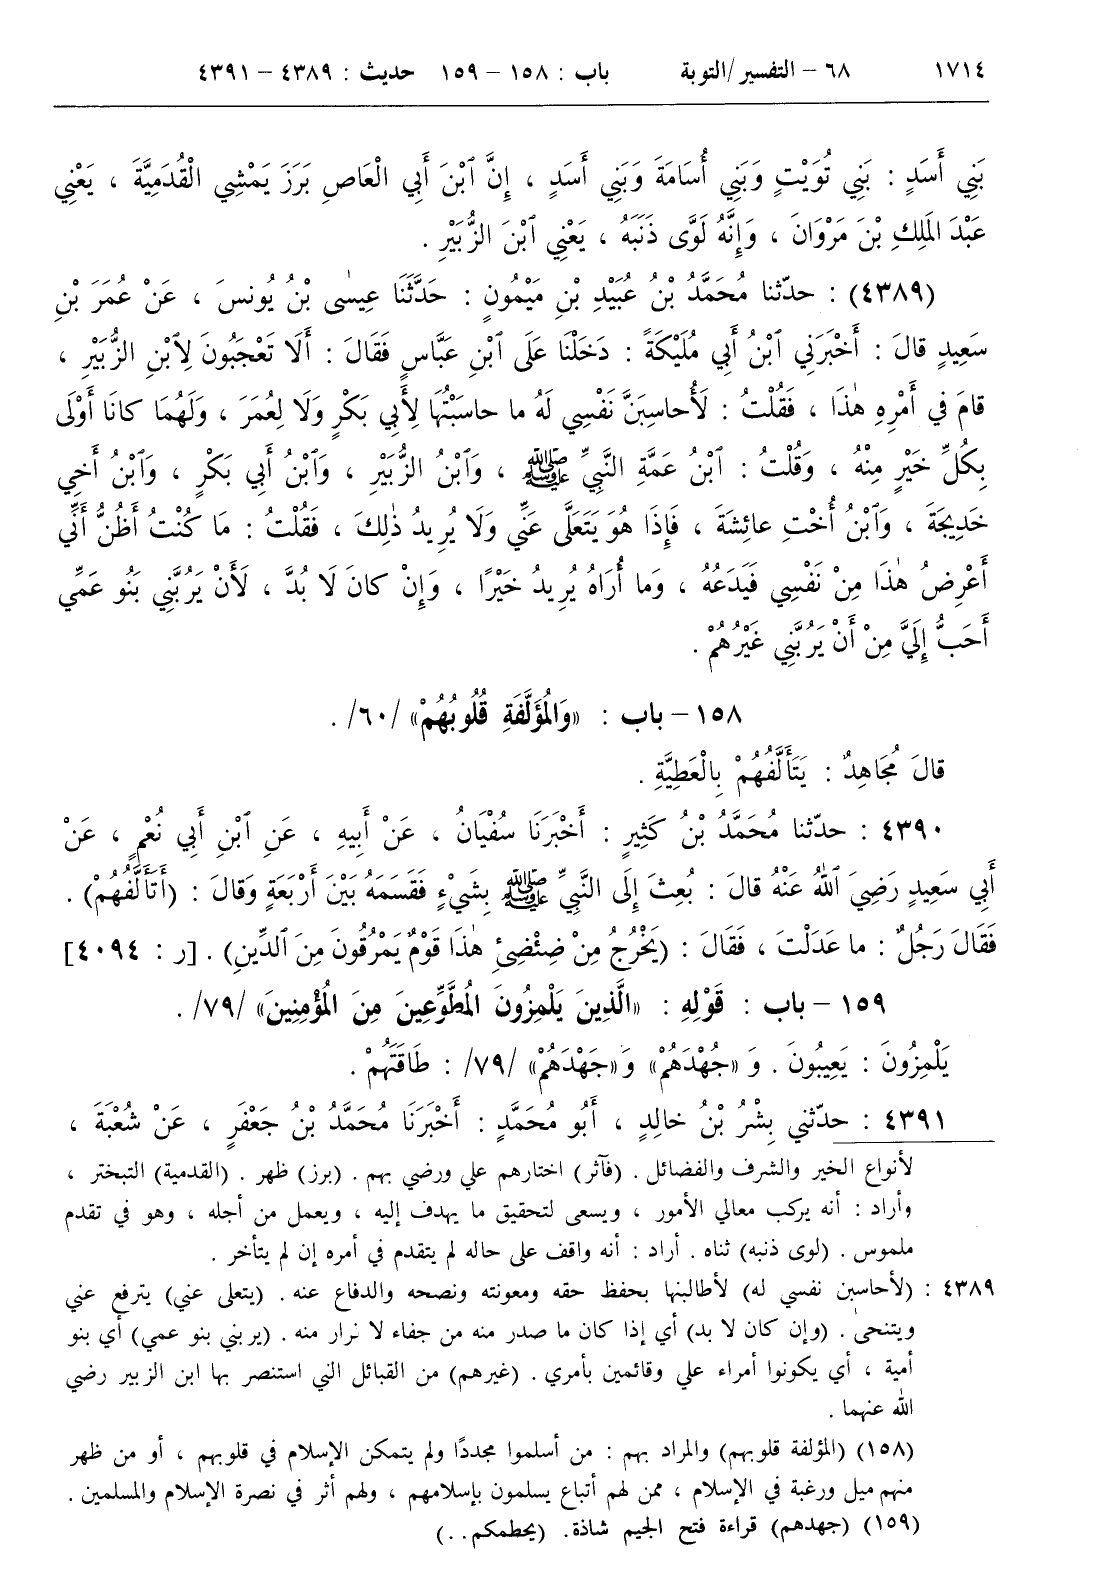 ١٧١٤ ٦٨ – التفسير/التوبة باب : ١٥٨ – ١٥٩ حديث : ٤٣٨٩ – ٤٣٩١
بَنِي أَسَدٍ : بَنِي تُوَيْتٍ وَبَنِي أُسَامَةَ وَبَنِي أَسَدٍ ، إِنَّ ٱبْنَ أَبِي الْعَاصِ بَرَزَ يَمْشِي الْقُدَمِيَّةَ ، يَعْنِي
عَبْدَ المَلِكِ بْنَ مَرْوَانَ ، وَإِنَّهُ لَوَّى ذَنَبَهُ ، يَعْنِي ٱبْنَ الزُّبَيْرِ .
(٤٣٨٩) : حدّثنا مُحَمَّدُ بْنُ عُبَيْدِ بْنِ مَيْمُونٍ : حَدَّثَنَا عِيسٰى بْنُ يُونسَ ، عَنْ عُمَرَ بْنِ
سَعِيدٍ قالَ : أَخْبَرَنِي ٱبْنُ أَبِي مُلَيْكَةَ : دَخَلْنَا عَلَى ٱبْنِ عَبَّاسٍ فَقَالَ : أَلَا تَعْجَبُونَ لِٱبْنِ الزُّبَيْرِ ،
قامَ في أَمْرِهِ هٰذَا ، فَقُلْتُ : لَأُحاسِبَنَّ نَفْسِي لَهُ ما حاسَبْتُهَا لِأَبِي بَكْرٍ وَلَا لِعُمَرَ ، وَلَهُمَا كانَا أَوْلَى
بِكُلِّ خَيْرٍ مِنْهُ ، وَقُلْتُ : ٱبْنُ عَمَّةِ النَّبِيِّ ﷺ ، وَٱبْنُ الزُّبَيْرِ ، وَٱبْنُ أَبِي بَكْرٍ ، وَٱبْنُ أَخِي
خَدِيجَةَ ، وَٱبْنُ أُخْتِ عائِشَةَ ، فَإِذَا هُوَ يَتَعَلَّى عَنِّي وَلَا يُرِيدُ ذٰلِكَ ، فَقُلْتُ : مَا كُنْتُ أَظُنُّ أَنِّي
أَعْرِضُ هٰذَا مِنْ نَفْسِي فَيَدَعُهُ ، وَما أُرَاهُ يُرِيدُ خَيْرًا ، وَإِنْ كانَ لَا بُدَّ ، لَأَنْ يَرُبَّنِي بَنُو عَمِّي
أَحَبُّ إِلَيَّ مِنْ أَنْ يَرُبَّنِي غَيْرُهُمْ .
١٥٨ – باب : «وَالمُؤَلَّفَةِ قُلُوبُهُمْ» /٦٠/ .
قالَ مُجَاهِدٌ : يَتَأَلَّفُهُمْ بِالْعَطِيَّةِ .
٤٣٩٠ : حدّثنا مُحَمَّدُ بْنُ كَثِيرٍ : أَخْبَرَنَا سُفْيَانُ ، عَنْ أَبِيهِ ، عَنِ ٱبْنِ أَبِي نُعْمٍ ، عَنْ
أَبِي سَعِيدٍ رَضِيَ ٱللهُ عَنْهُ قالَ : بُعِثَ إِلَى النَّبِيِّ ﷺ بِشَيْءٍ فَقَسَمَهُ بَيْنَ أَرْبَعَةٍ وَقالَ : (أَتَأَلَّفُهُمْ) .
فَقَالَ رَجُلٌ : ما عَدَلْتَ ، فَقَالَ : (يَخْرُجُ مِنْ ضِئْضِئِ هٰذَا قَوْمٌ يَمْرُقُونَ مِنَ ٱلدِّينِ) . [ر : ٤٠٩٤]
١٥٩ – باب : قَوْلِهِ : «الَّذِينَ يَلْمِزُونَ المُطَّوِّعِينَ مِنَ المُؤْمِنِينَ» /٧٩/ .
يَلْمِزُونَ : يَعِيبُونَ . وَ «جُهْدَهُمْ» وَ«جَهْدَهُمْ» /٧٩/ : طَاقَتَهُمْ .
٤٣٩١ : حدّثني بِشْرُ بْنُ خالِدٍ ، أَبُو مُحَمَّدٍ : أَخْبَرَنَا مُحَمَّدُ بْنُ جَعْفَرٍ ، عَنْ شُعْبَةَ ،
لأنواع الخير والشرف والفضائل . (فآثر) اختارهم علي ورضي بهم . (برز) ظهر . (القدمية) التبختر ،
وأراد : أنه يركب معالي الأمور ، ويسعى لتحقيق ما يهدف إليه ، ويعمل من أجله ، وهو في تقدم
ملموس . (لوى ذنبه) ثناه . أراد : أنه واقف على حاله لم يتقدم في أمره إن لم يتأخر .
٤٣٨٩ : (لأحاسبن نفسي له) لأطالبنها بحفظ حقه ومعونته ونصحه والدفاع عنه . (يتعلى عني) يترفع عني
ويتنحى . (وإن كان لا بد) أي إذا كان ما صدر منه من جفاء لا نرار منه . (يربني بنو عمي) أي بنو
أمية ، أي يكونوا أمراء علي وقائمين بأمري . (غيرهم) من القبائل التي استنصر بها ابن الزبير رضي
الله عنهما .
(١٥٨) (المؤلفة قلوبهم) والمراد بهم : من أسلموا مجددًا ولم يتمكن الإسلام في قلوبهم ، أو من ظهر
منهم ميل ورغبة في الإسلام ، ممن لهم أتباع يسلمون بإسلامهم ، ولهم أثر في نصرة الإسلام والمسلمين .
(١٥٩) (جهدهم) قراءة فتح الجيم شاذة. (يحطمكم..)